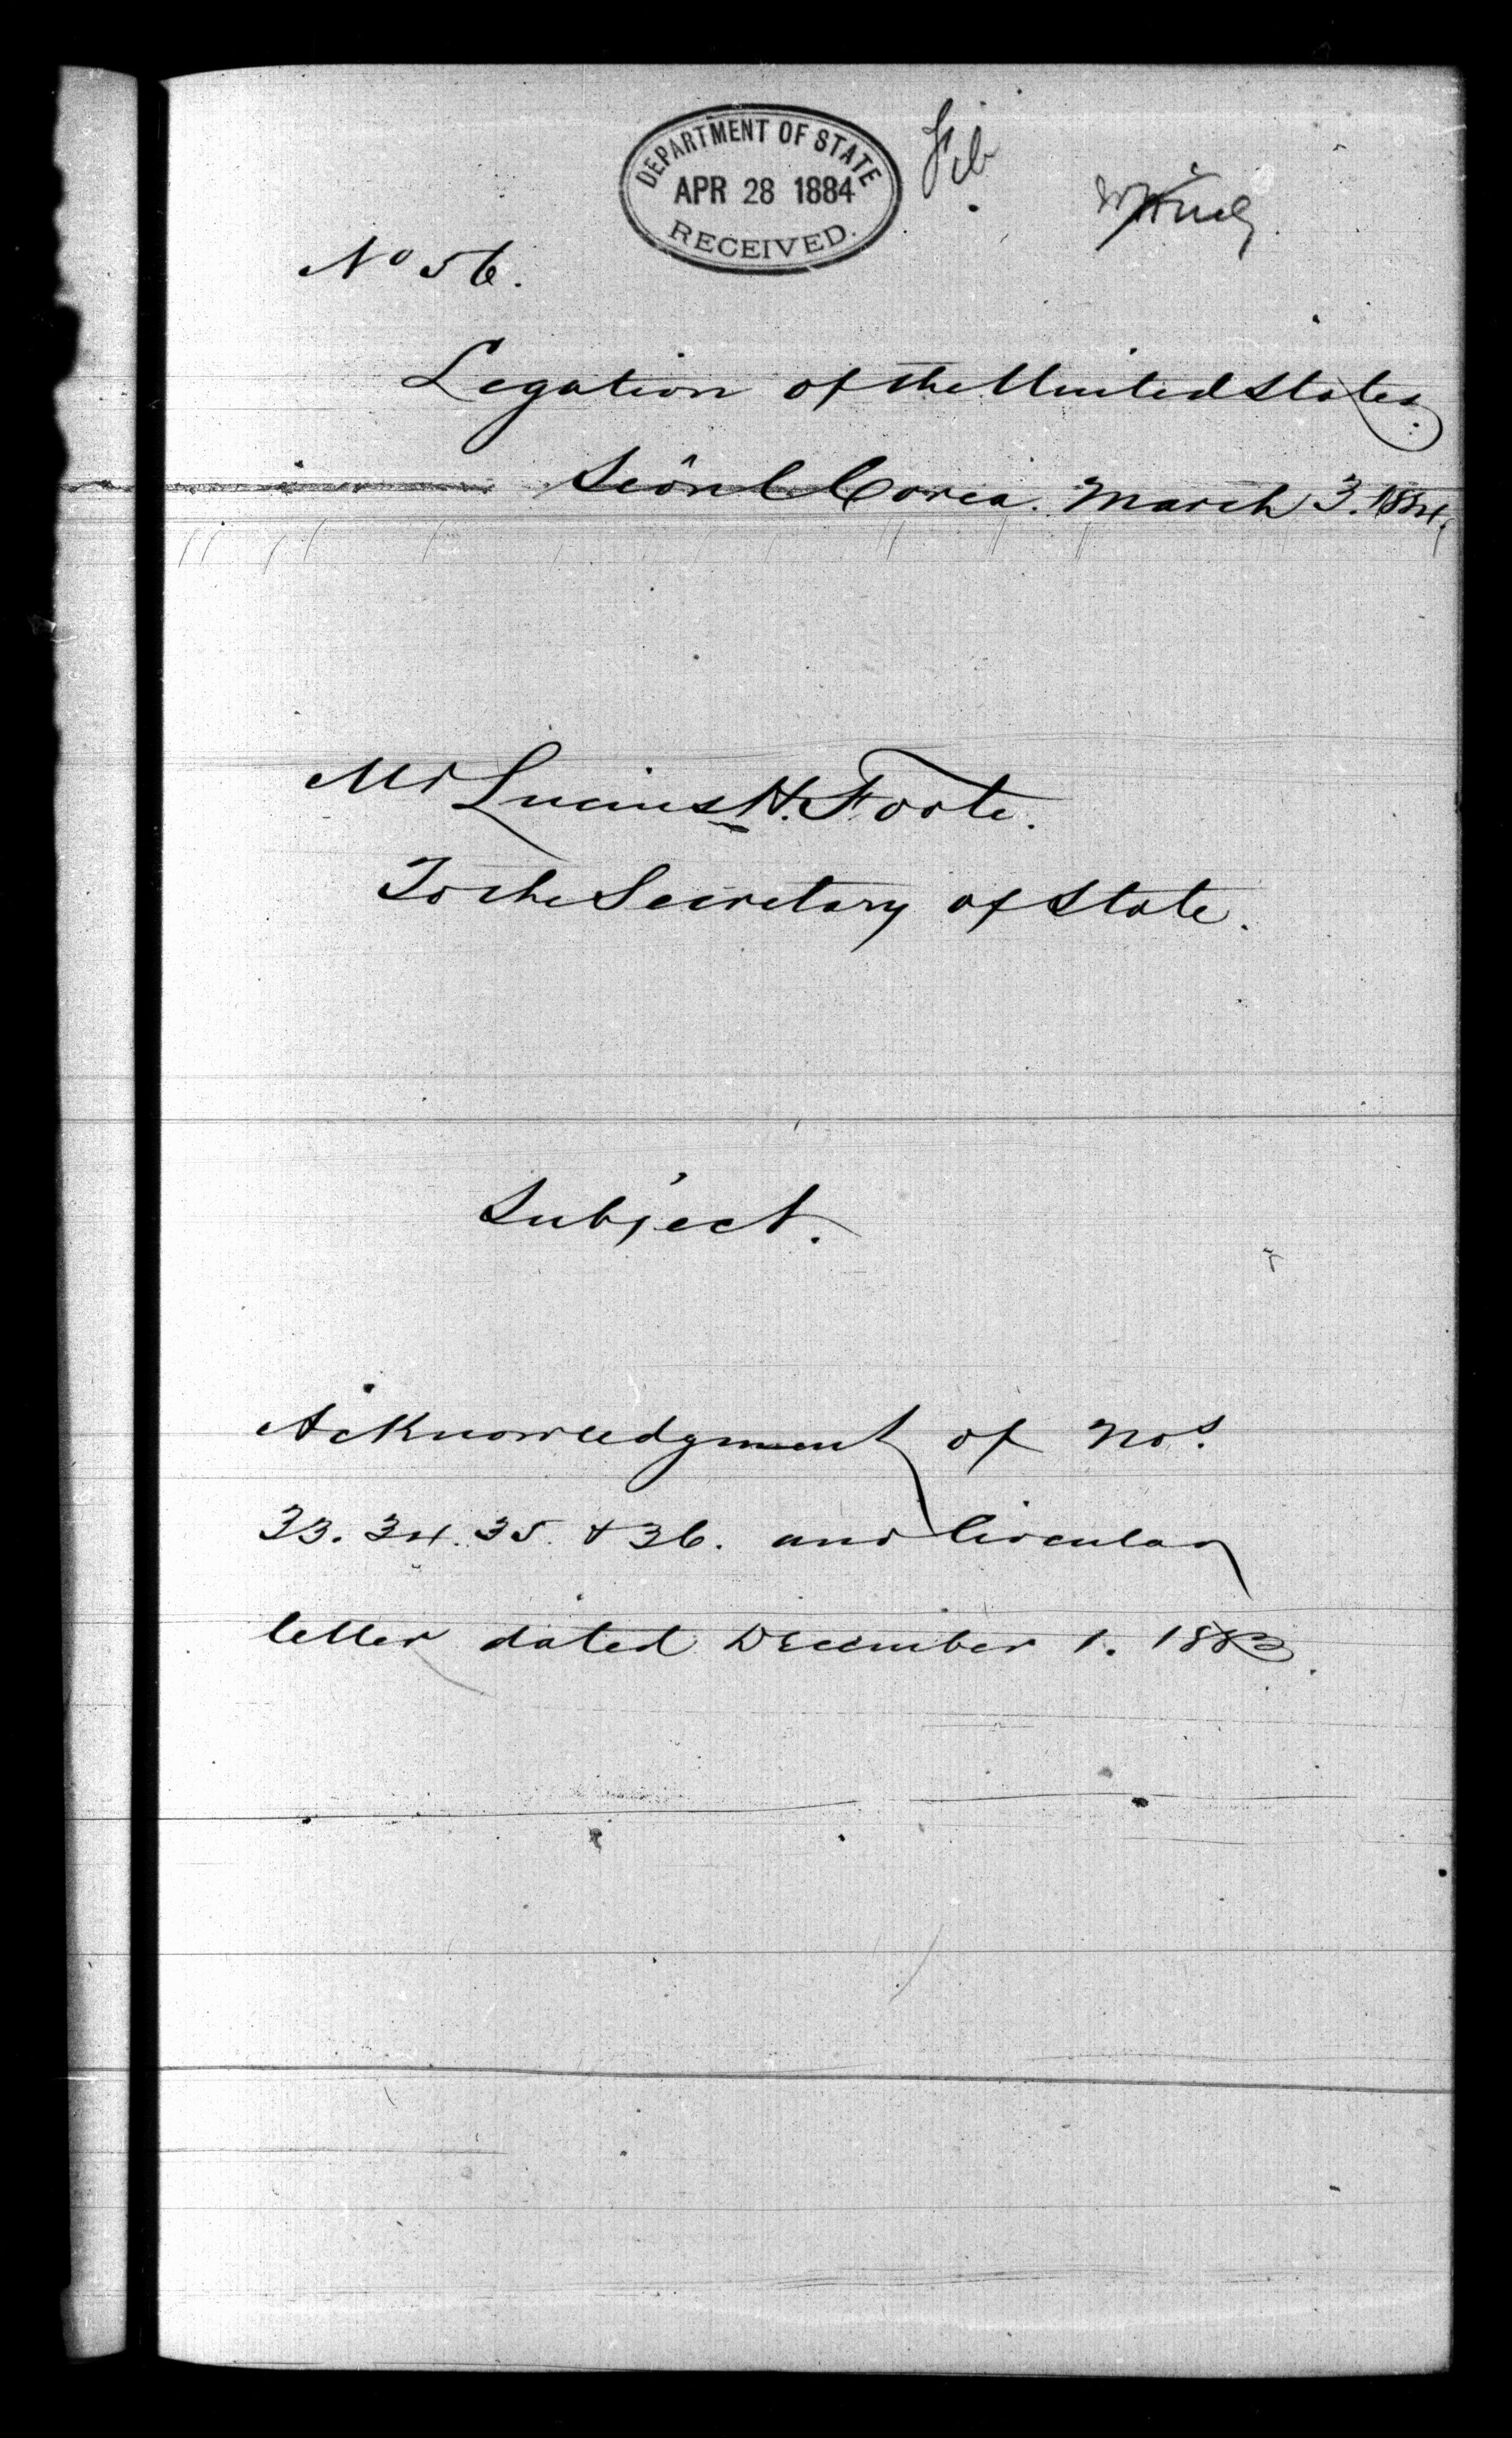 DEPARTMENT OF STATE
APR 28 1884
RECEIVED.
No 56.
Legation of the United States.
Seôul Corea. March 3. 1884,
Mr Lucius H. Foote.
To the Secretary of State.
Subject.
Acknowledgment of Nos.
33. 34. 35. & 36. and Circular
letter dated December 1. 1883.